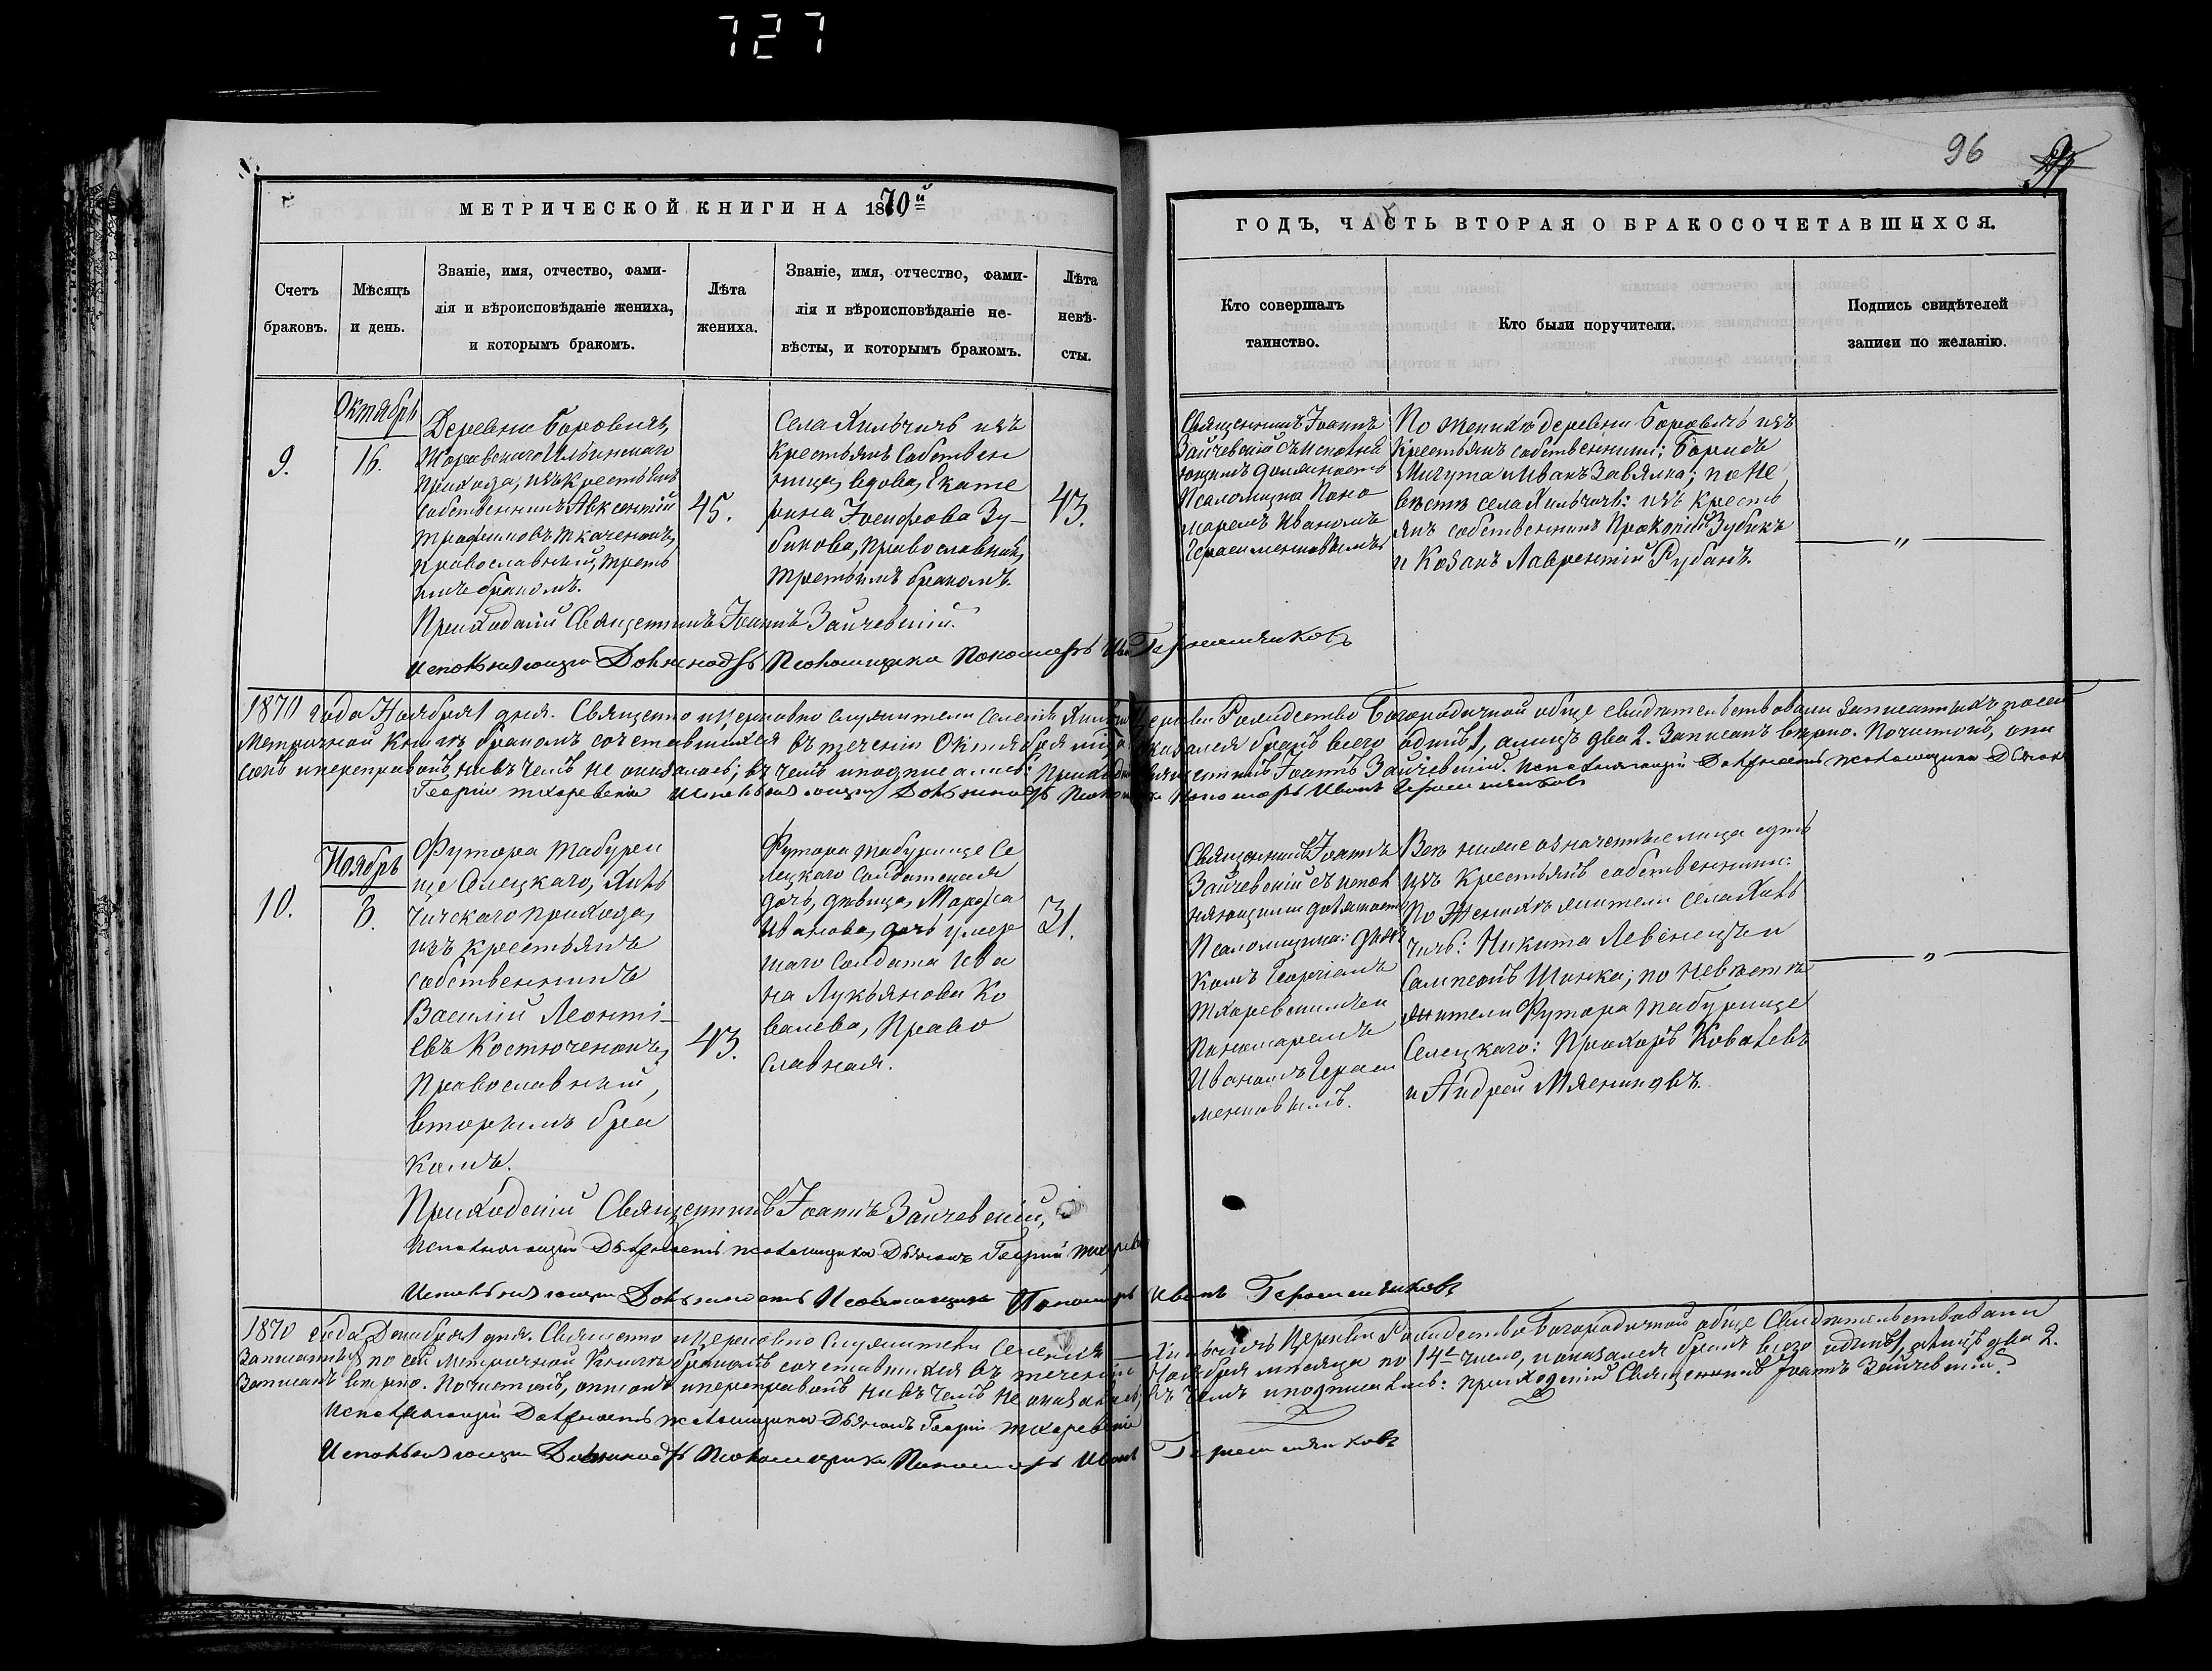 727
96
МЕТРИЧЕСКОЙ КНИГИ НА 1870й
ГОДЪ, ЧАСТЬ ВТОРАЯ О БРАКОСОЧЕТАВШИХСЯ.
Счетъ
браковъ.
Мѣсяцъ
и день.
Званіе, имя, отчество, фами-
лія и вѣроисповѣданіе жениха,
и которымъ бракомъ.
Лѣта
жениха.
Званіе, имя, отчество, фами-
лія и вѣроисповѣданіе не-
вѣсты, и которымъ бракомъ.
Лѣта
невѣ-
сты.
Кто совершалъ
таинство.
Кто были поручители.
Подпись свидѣтелей
записи по желанію.
9.
Октябрь
16.
Деревни Боровичъ,
Жоравскаго Ильинскаго
прихода, изъ крестьянъ
собственникъ Авксентій
Трофимовъ Ткаченокъ,
православный, треть
имъ бракомъ.
45.
Села Хильчичъ изъ
крестьянъ собствен
ница, вдова, Екате
рина Іосифова Зу-
бикова, православная,
третьимъ бракомъ.
43.
Священникъ Іоаннъ
Зайчевскій съ исполня
ющимъ должность
Псаломщика Поно
маремъ Иваномъ
Герасименковымъ
По женихѣ деревни Боровичъ изъ
крестьянъ собственники: Борисъ
Мигута и Иванъ Завялка; по не
вѣстѣ села Хильчичъ: изъ кресть
янъ собственникъ Прокопій Зубикъ
и Козакъ Лаврентій Рубанъ.
Приходскій Священникъ Іоаннъ Зайчевскій.
Исполняющій Должность Псаломщика Пономарь Иванъ Герасименковъ
1870 года Ноября 1 дня. Священно и церковно служители селенія Хильчичъ Церкви Рождество Богородичной обще свидѣтельствовали записанныхъ по сей
Метричной книгѣ бракомъ сочетавшихся въ теченіи Октября мца оказался бракъ всего одинъ 1, а лицъ два 2. Записанъ вѣрно. Почистокъ, опи
сокъ и переправокъ ни въ чемъ не оказалось; въ чемъ и подписались: Приходскій Священникъ Іоаннъ Зайчевскій. Исполняющій Должность псаломщика Дьяконъ
Георгій Тхоревскій Исполняющій Должность Псаломщика Пономарь Иванъ Герасименковъ
10.
Ноябрь
8.
Футора Табури
ще Селецкаго, Хиль
чичскаго прихода,
изъ крестьянъ
собственникъ
Василій Леонті-
евъ Костюченокъ,
православный,
вторымъ бра
комъ.
43.
Футора Табурище Се
лецкаго солдатская
дочь, дѣвица, Марфа
Иванова, дочь умер
шаго солдата Ива
на Лукьянова Ко
валева, право
славная.
31.
Священникъ Іоаннъ
Зайчевскій съ испол
няющими должность
Псаломщика: Дья
комъ Георгіемъ
Тхоревскимъ и
Пономаремъ
Иваномъ Гераси
менковымъ.
Всѣ ниже означенные лица суть
изъ крестьянъ собственники:
По женихѣ жители села Хиль
чичъ: Никита Левенецъ и
Сампсонъ Шинка; по невѣстѣ
жители Футора Табурище
Селецкаго: Прохоръ Ковалевъ
и Андрей Мясниковъ.
Приходскій Священникъ Іоаннъ Зайчевскій,
Исполняющій Должность псаломщика Дьяконъ Георгій Тхоревскій
Исполняющій Должность Псаломщика Пономарь Иванъ Герасименковъ
1870 года Декабря 1 дня. Священно и церковно служители селенія Хильчичъ Церкви Рождество Богородичной обще Свидѣтельствовали
Записанныхъ по сей Метричной книгѣ бракомъ сочетавшихся въ теченіи Ноября мѣсяца по 14е число, и оказался бракъ всего одинъ 1, а лицъ два 2.
Записанъ вѣрно. Почистокъ, описокъ и переправокъ ни въ чемъ не оказалось; въ чемъ и подписались: приходскій Священникъ Іоаннъ Зайчевскій.
Исполняющій Должность псаломщика Дьяконъ Георгій Тхоревскій
Исполняющій Должность Псаломщика Пономарь Иванъ Герасименковъ